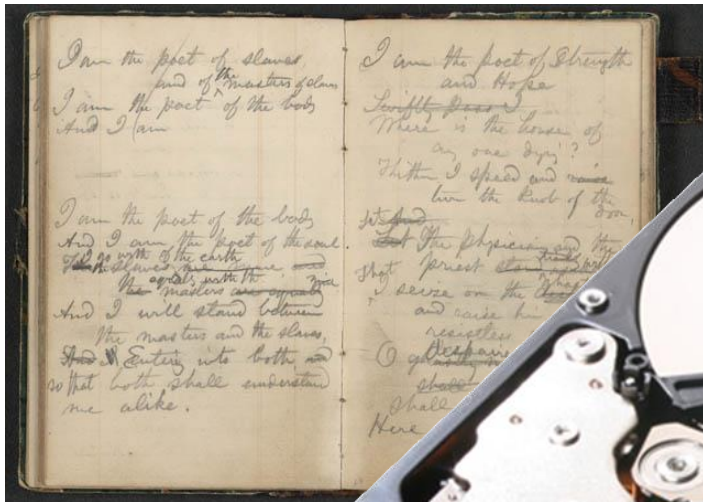 I am the poet of slaves,
and of the masters of slaves
I am the poet of the body
And I am
I am the poet of the body
And I am the poet of the soul
I go with the slaves of the earth
equally with the masters
And I will stand between
the masters and the slaves,
And I Entering into both and
so that both shall understand
me alike.
I am the poet of Strength
and Hope
Swiftly pass I
Where is the house of
any one dying?
Thither I speed and raise
turn the knob of the
door,
Let
Let The physician and the
priest
That I seize on the
and raise him
resistless
O
Despair
shall
Shall
Here